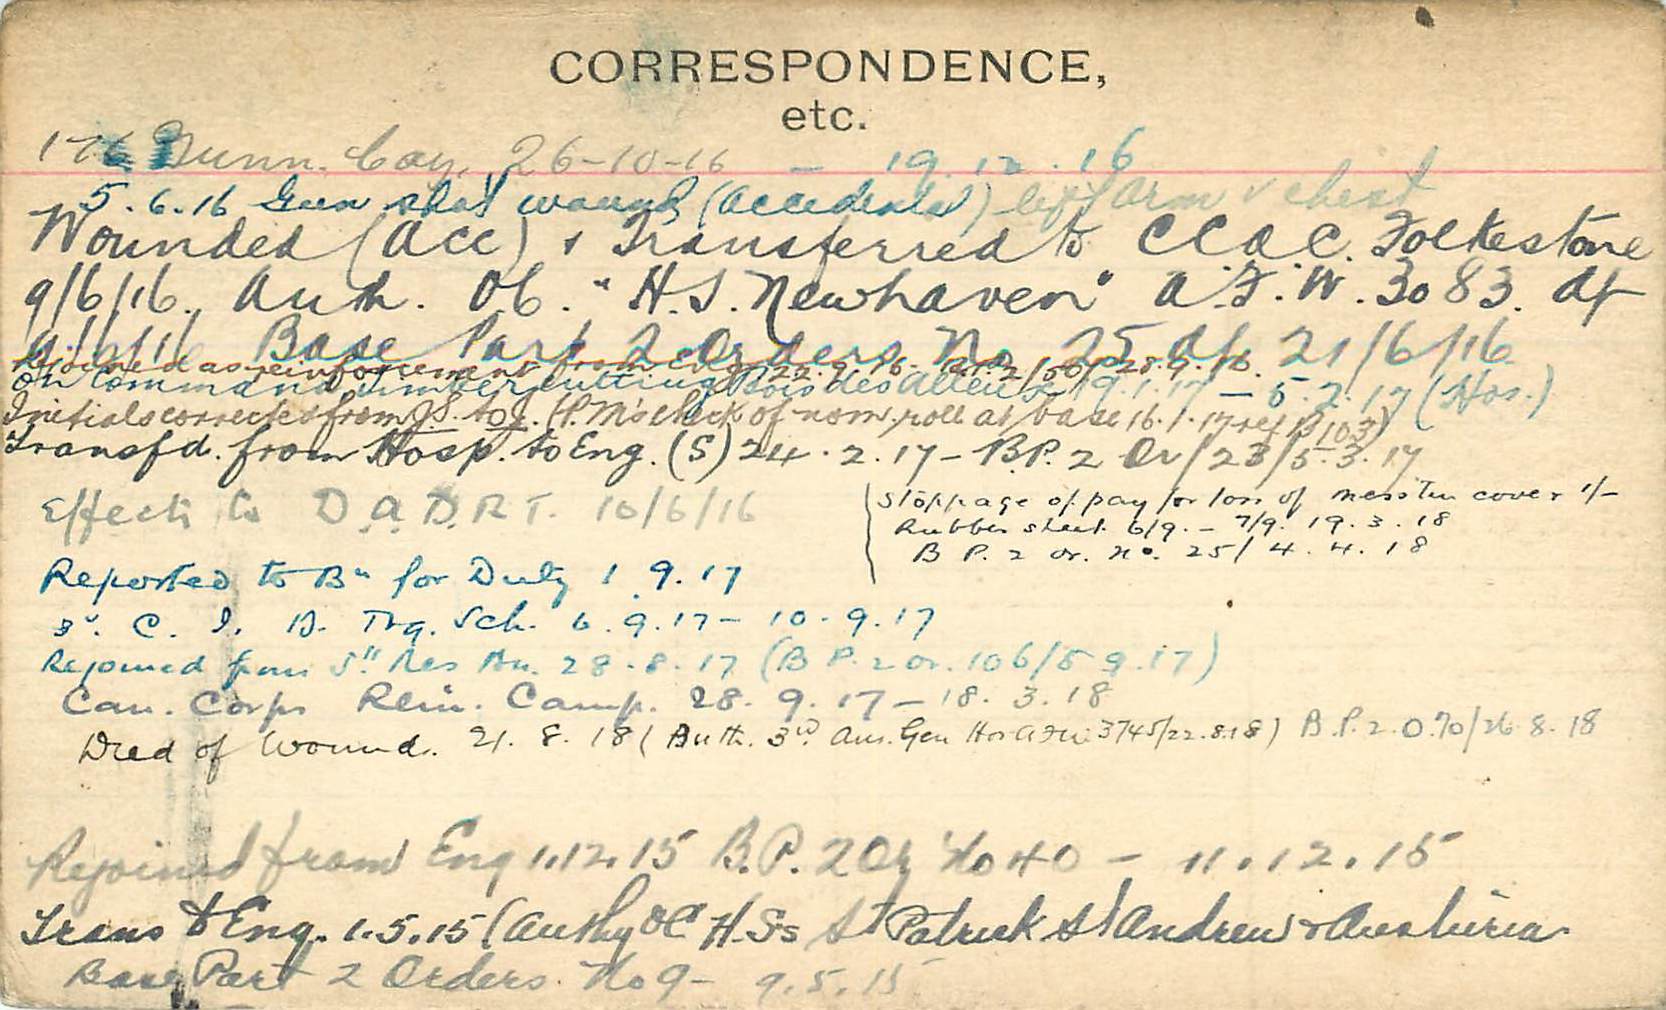 CORRESPONDENCE,
etc.
176 Tunn. Coy. 26-10-16 — 19.12.16
5.6.16 Gun shot wound (accidental) left arm & chest
Wounded (acc) & Transferred to CCAC. Folkestone
9/6/16. Auth. OC. "H.S. Newhaven" A.F.W. 3083. df
9/6/16 Base Part 2 Orders No 25 df 21/6/16
Rejoined as reinforcement from Eng 22.9.16. B.P.2/50/28.9.16.
On Command timber cutting Bois des Alleux 19.1.17 — 5.2.17 (Hos.)
Initials corrected from J.S. to J. (P.M's check of nom. roll at base 16.1.17 ref B103)
Transfd. from Hosp. to Eng. (S) 24.2.17 - B.P. 2 Or/23/5.3.17
Effects to D.A.D.R.T. 10/6/16
Stoppage of pay for loss of mess tin cover 1/-
Rubber sheet 6/9. - 7/9. 19.3.18
B P. 2 or. no. 25/4.4.18
Reported to Bn for Duty 1.9.17
C. I. B. Trg. Sch. 6.9.17 - 10.9.17
Rejoined from 5" Res Bn. 28.8.17 (B P. 2 or. 106/5 9.17)
Can. Corps Rein. Camp. 28.9.17 - 18.3.18
Died of Wound. 21.8.18 (Auth. 3rd Aus. Gen Hos AFW 3745/22.8.18) B.P.2.O.70/26.8.18
Rejoined from Eng 1.12.15 B.P. 2 Or No 40 - 11.12.15
Trans to Eng. 1.5.15 (Authy OC H.Ss St Patrick St Andrew & Asturias
Base Part 2 Orders. No 9 - 9.5.15